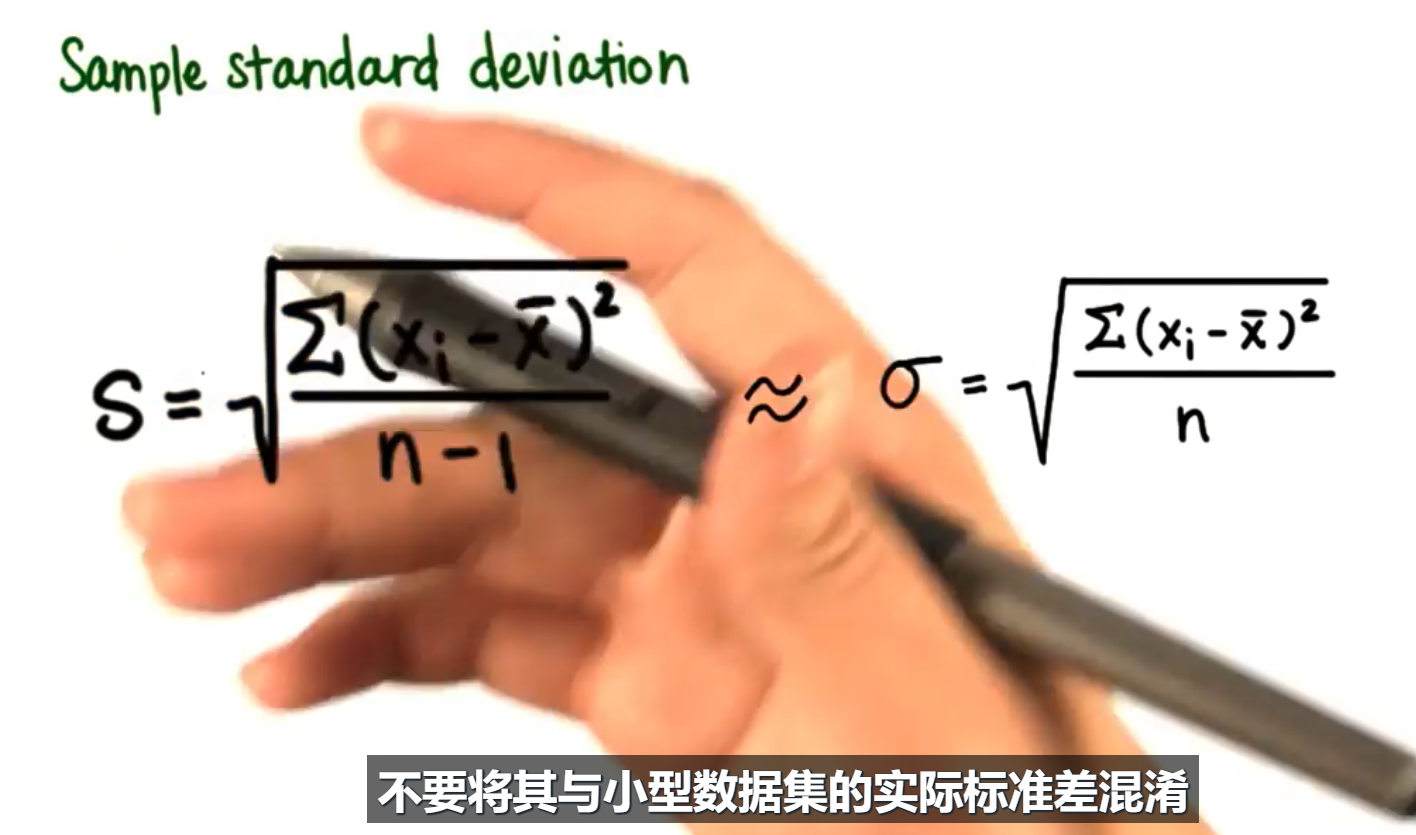 Sample standard deviation
S = √(Σ(xᵢ - x̄)² / (n - 1)) ≈ σ = √(Σ(xᵢ - x̄)² / n)
不要将其与小型数据集的实际标准差混淆